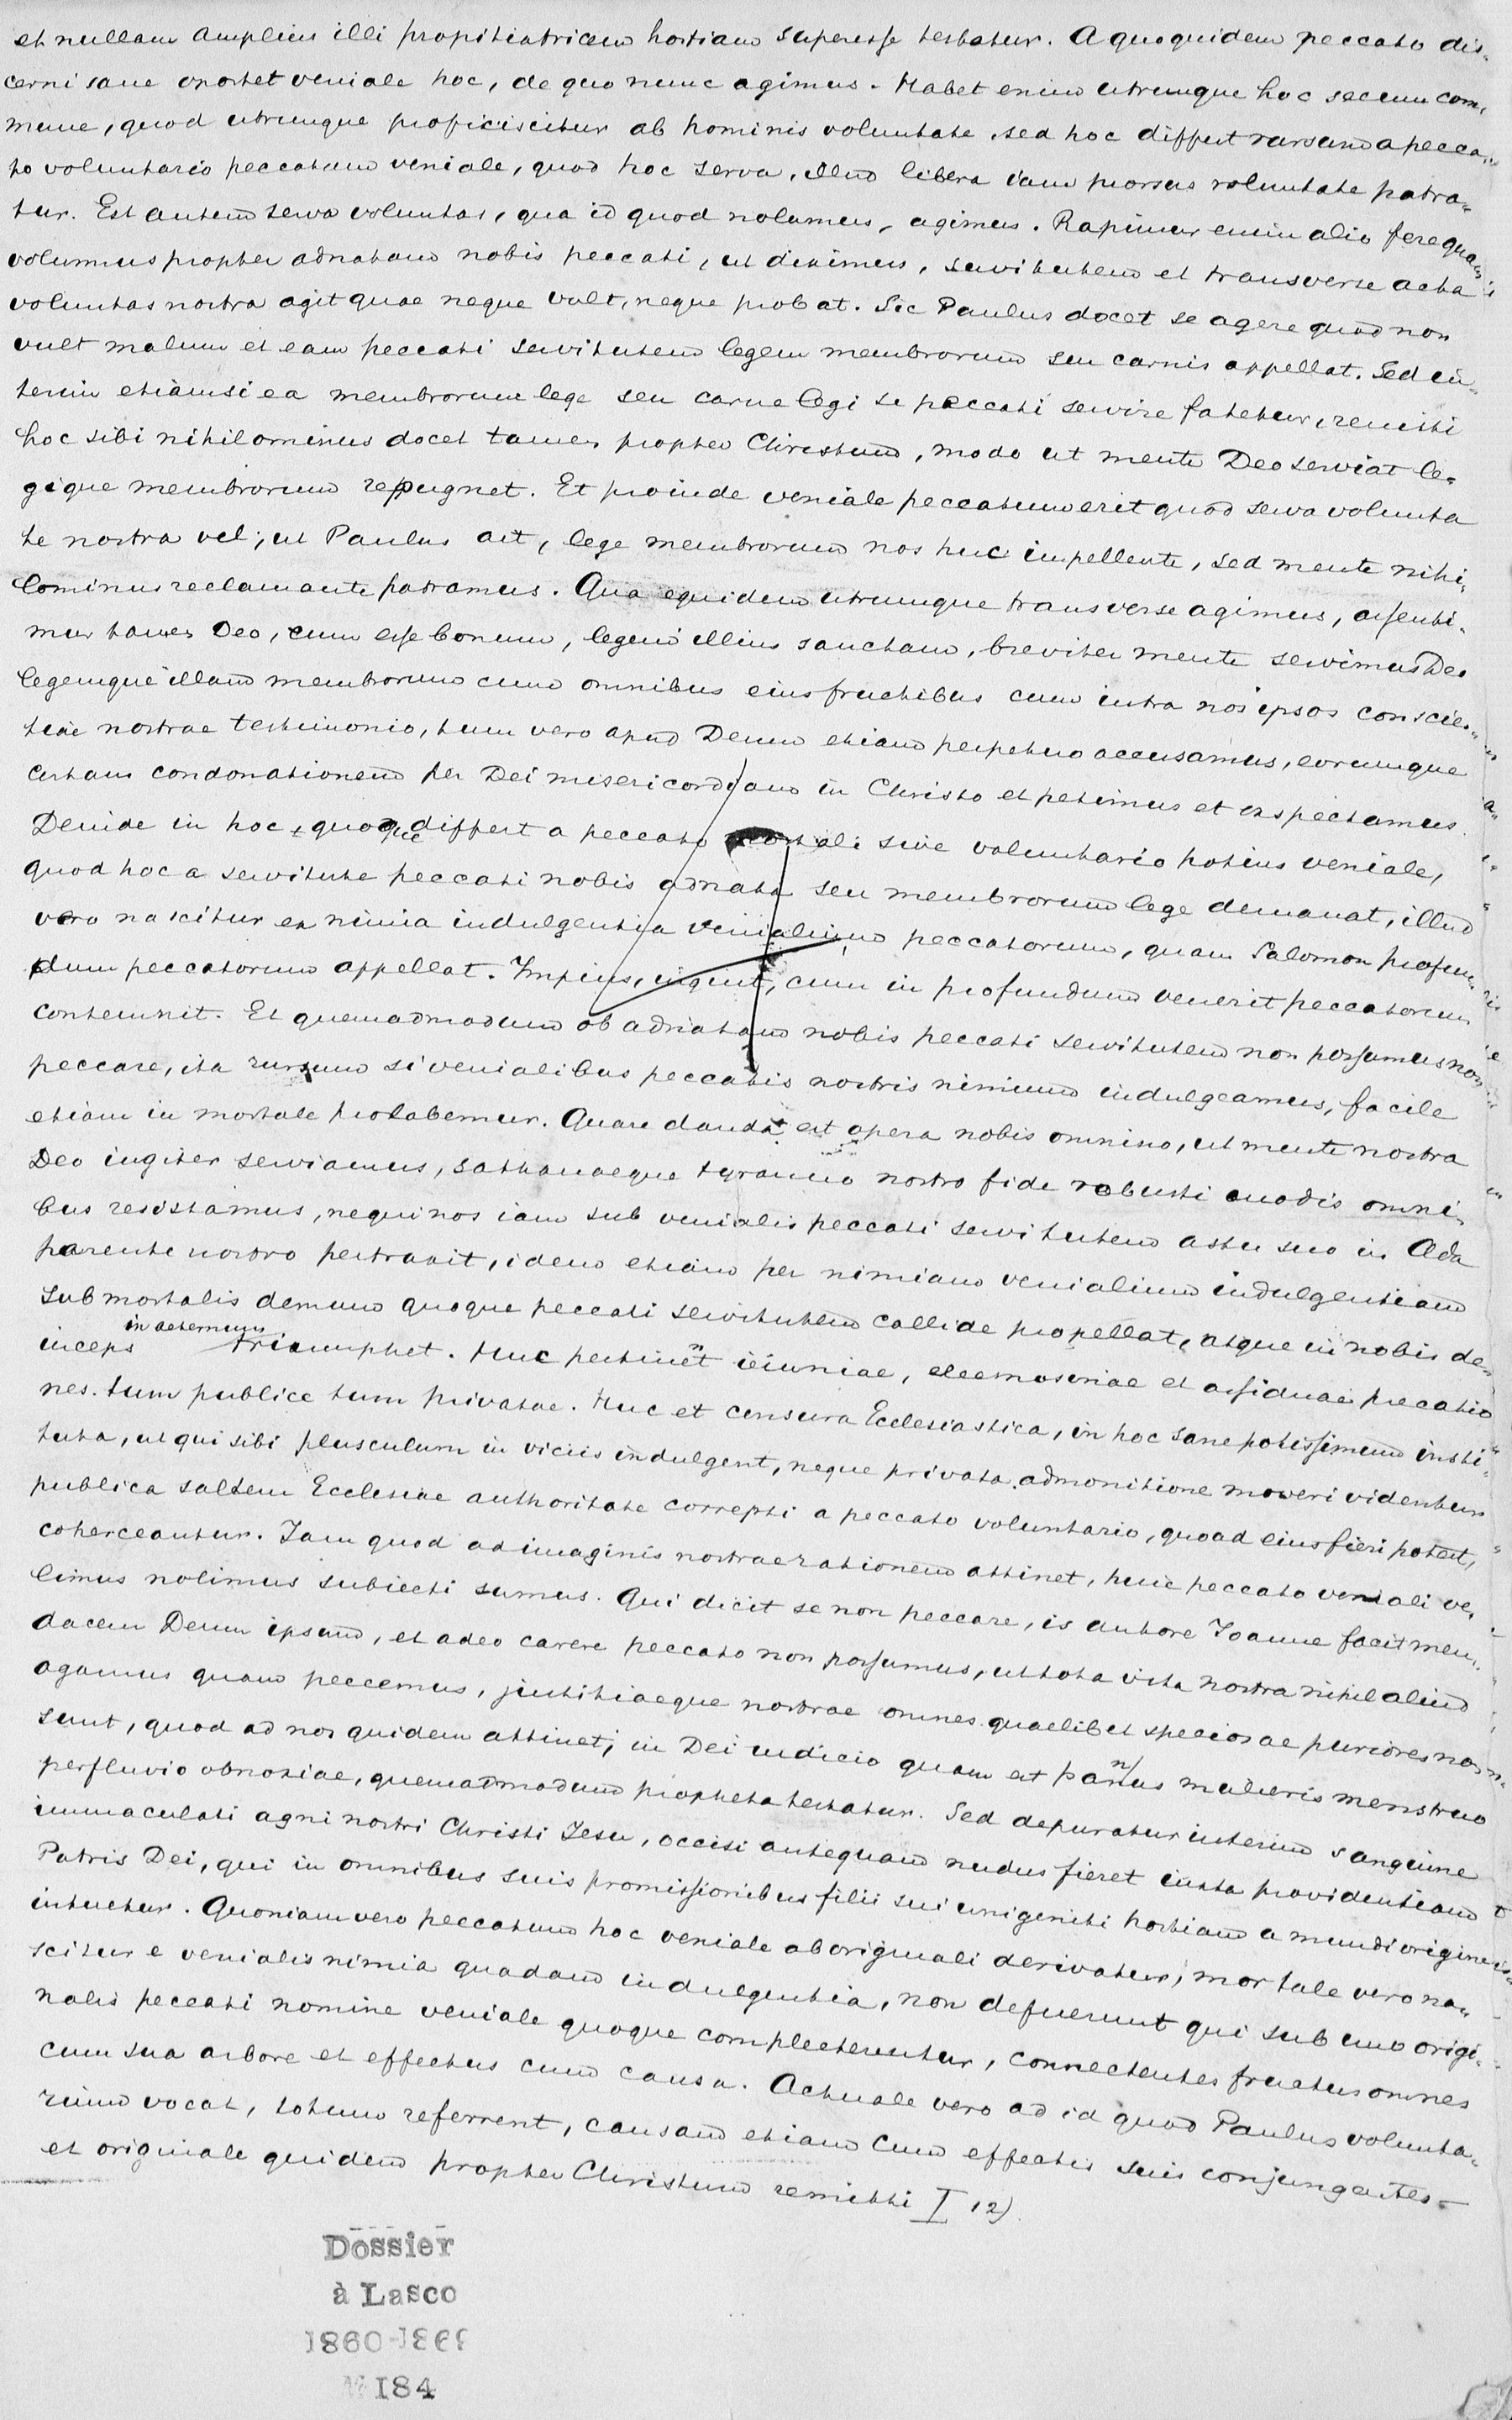 et nullam amplius illi propitiatricem hostiam superesse testatur. A quo quidem peccato dis-
cerni sane oportet veniale hoc, de quo nunc agimus. Habet enim utrumque hoc secum com-
mune, quod utrumque proficiscitur ab hominis voluntate, sed hoc differt rursum a pecca-
to voluntario peccatum veniale, quod hoc serva, illud libera iam prorsus voluntate patra-
tur. Est autem serva voluntas, qua id quod nolumus, agimus. Rapimur enim alio fere quam
volumus propter adnatam nobis peccati, ut diximus, servitutem et transverse acta
voluntas nostra agit quae neque vult, neque probat. Sic Paulus docet se agere quod non
vult malum et eam peccati servitutem legem membrorum seu carnis appellat. Sed in-
terim etiamsi ea membrorum lege seu carne legi se peccati servire fatetur, remitti
hoc sibi nihilominus docet tamen propter Christum, modo ut mente Deo serviat le-
gique membrorum repugnet. Et proinde veniale peccatum erit quod serva volunta
te nostra vel, ut Paulus ait, lege membrorum nos huc impellente, sed mente nihi-
lominus reclamante patramus. Qua equidem utrumque transverse agimus, assenti-
mur tamen Deo, eum esse bonum, legem illius sanctam, breviter mente servimus Deo
legemque illam membrorum cum omnibus eius fructibus cum intra nos ipsos conscien-
tiae nostrae testimonio, tum vero apud Deum etiam perpetuo accusamus, eorumque
certam condonationem per Dei misericordiam in Christo et petimus et expectamus.
Deinde in hoc quoque differt a peccato mortali sive voluntario potius veniale,
quod hoc a servitute peccati nobis adnata seu membrorum lege demanat, illud
vero nascitur ex nimia indulgentia venialium peccatorum, quam Salomon profun-
dum peccatorum appellat. Impius, inquit, cum in profundum venerit peccatorum
contemnit. Et quemadmodum ob adnatam nobis peccati servitutem non possumus non
peccare, ita rursum si venialibus peccatis nostris nimium indulgeamus, facile
etiam in mortale prolabemur. Quare danda est opera nobis omnino, ut mente nostra
Deo iugiter serviamus, sathanaeque tyranno nostro fide robusti modis omni-
bus resistamus, ne qui nos iam sub venialis peccati servitutem astu suo in Ada
parente nostro pertraxit, idem etiam per nimiam venialium indulgentiam
sub mortalis demum quoque peccati servitutem callide propellat, atque in nobis de-
inceps in aeternum triumphet. Huc pertinent ieiuniae, eleemosinae et assiduae precatio
nes. tum publice tum privatae. Huc et censura Ecclesiastica, in hoc sane potissimum insti-
tuta, ut qui sibi plusculum in viciis indulgent, neque privata admonitione moveri videntur
publica saltem Ecclesiae authoritate correpti a peccato voluntario, quoad eius fieri potest,
coherceantur. Iam quod ad imaginis nostrae rationem attinet, huic peccato veniali ve-
limus nolimus subiecti sumus. Qui dicit se non peccare, is autore Ioanne facit men-
dacem Deum ipsum, et adeo carere peccato non possumus, ut tota vita nostra nihil aliud
agamus quam peccemus, justitiaeque nostrae omnes quaelibet speciosae puriores non
sunt, quod ad nos quidem attinet, in Dei iudicio quam est pannus mulieris menstruo
perfluvio obnoxiae, quemadmodum propheta testatur. Sed depuratur interim sanguine
immaculati agni nostri Christi Jesu, occisi antequam nudus fieret iuxta providentiam
Patris Dei, qui in omnibus suis promissionibus filii sui unigeniti hostiam a mundi origine
intuetur. Quoniam vero peccatum hoc veniale ab originali derivatur, mortale vero na-
scitur e venialis nimia quadam indulgentia, non defuerunt qui sub uno origi-
nalis peccati nomine veniale quoque complecterentur, connectentes fructus omnes
cum sua arbore et effectus cum causa. Actuale vero ad id quod Paulus volunta-
rium vocat, totum referrent, causam etiam cum effectis suis conjungentes
et originale quidem propter Christum remitti I 12)
Dossier
à Lasco
1860-1869
№ 184